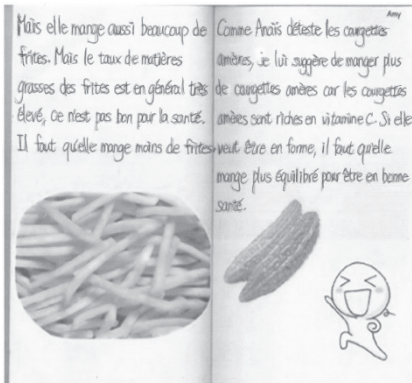 Mais elle mange aussi beaucoup de
frites. Mais le taux de matières
grasses des frites est en général très
élevé, ce n'est pas bon pour la santé.
Il faut qu'elle mange moins de frites.
Amy
Comme Anaïs déteste les courgettes
amères, je lui suggère de manger plus
de courgettes amères car les courgettes
amères sont riches en vitamine C. Si elle
veut être en forme, il faut qu'elle
mange plus équilibré pour être en bonne
santé.